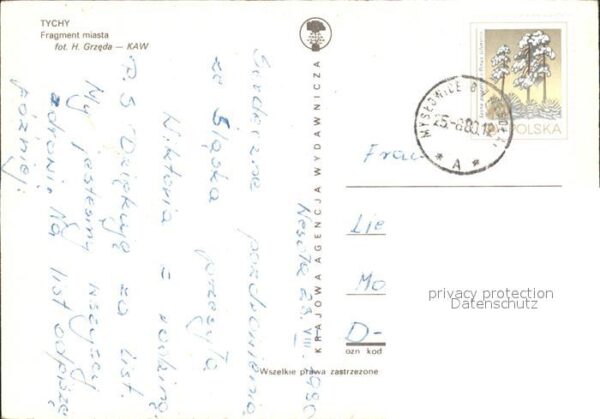 TYCHY
Fragment miasta
fot. H. Grzęda — KAW
KRAJOWA AGENCJA WYDAWNICZA
POLSKA
MYSŁOWICE
25.-8.80.12
* A *
Wesoła 23. VIII. 1980
Serdeczne pozdrowienia
ze Śląska przesyła
Wiktoria z rodziną.
P.S Dziękuję za list.
My jesteśmy wszyscy
zdrowi. Na list odpiszę
później.
Frau
Lie
Mo
D-
ozn kod
Wszelkie prawa zastrzezone
privacy protection
Datenschutz